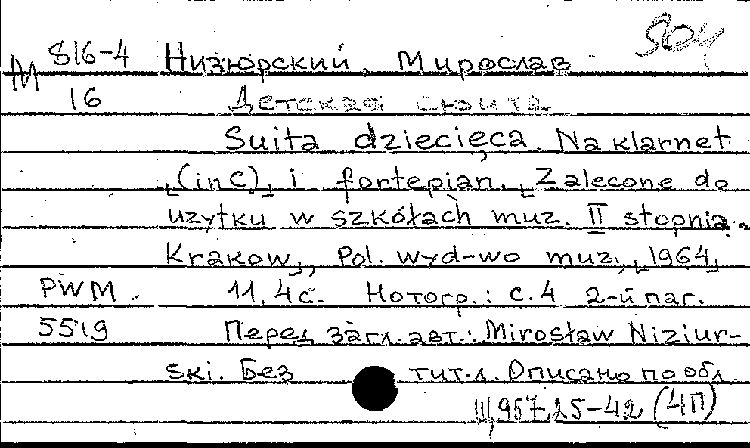 М 816-4 Низюрский, Мирослав 804
16 Детская сюита
Suita dziecięca. Na klarnet
[(in C)] i fortepian. [Zalecone do
użytku w szkołach muz. II stopnia.
Krakow], Pol. wyd-wo muz., [1964]
PWM. 11, 4 с. Нотогр.: с. 4 2-й паг.
5519 Перед загл. авт.: Mirosław Niziur-
ski. Без тит. л. Описано по обл
25-42 (4П)